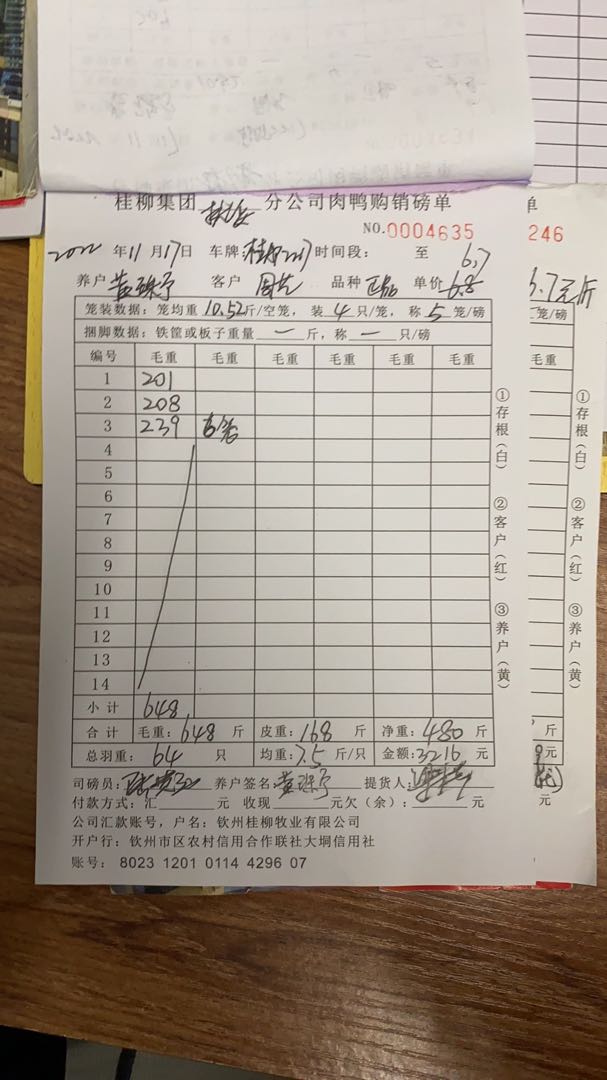 桂柳集团 分公司肉鸭购销磅单
单
NO.0004635
246
2022 年11月17日 车牌: 时间段: 至
6.7
养户 黄 客户 周 品种 正品 单价 6.8
6.7元/斤
笼装数据: 笼均重 10.52斤/空笼, 装 4 只/笼, 称 5 笼/磅
笼/磅
捆脚数据: 铁筐或板子重量 一 斤, 称 一 只/磅
只/磅
编号 毛重 毛重 毛重 毛重 毛重 毛重
毛重
1 201
2 208
3 239
4
5
6
7
8
9
10
11
12
13
14
小计 648
合计 毛重: 648 斤 皮重: 168 斤 净重: 480 斤
斤
总羽重: 64 只 均重: 7.5 斤/只 金额: 3216 元
元
司磅员: 养户签名: 黄 提货人:
付款方式: 汇 元 收现 元欠(余): 元
元
公司汇款账号, 户名: 钦州桂柳牧业有限公司
开户行: 钦州市区农村信用合作联社大垌信用社
账号: 8023 1201 0114 4296 07
①存根(白) ②客户(红) ③养户(黄)
①存根(白) ②客户(红) ③养户(黄)